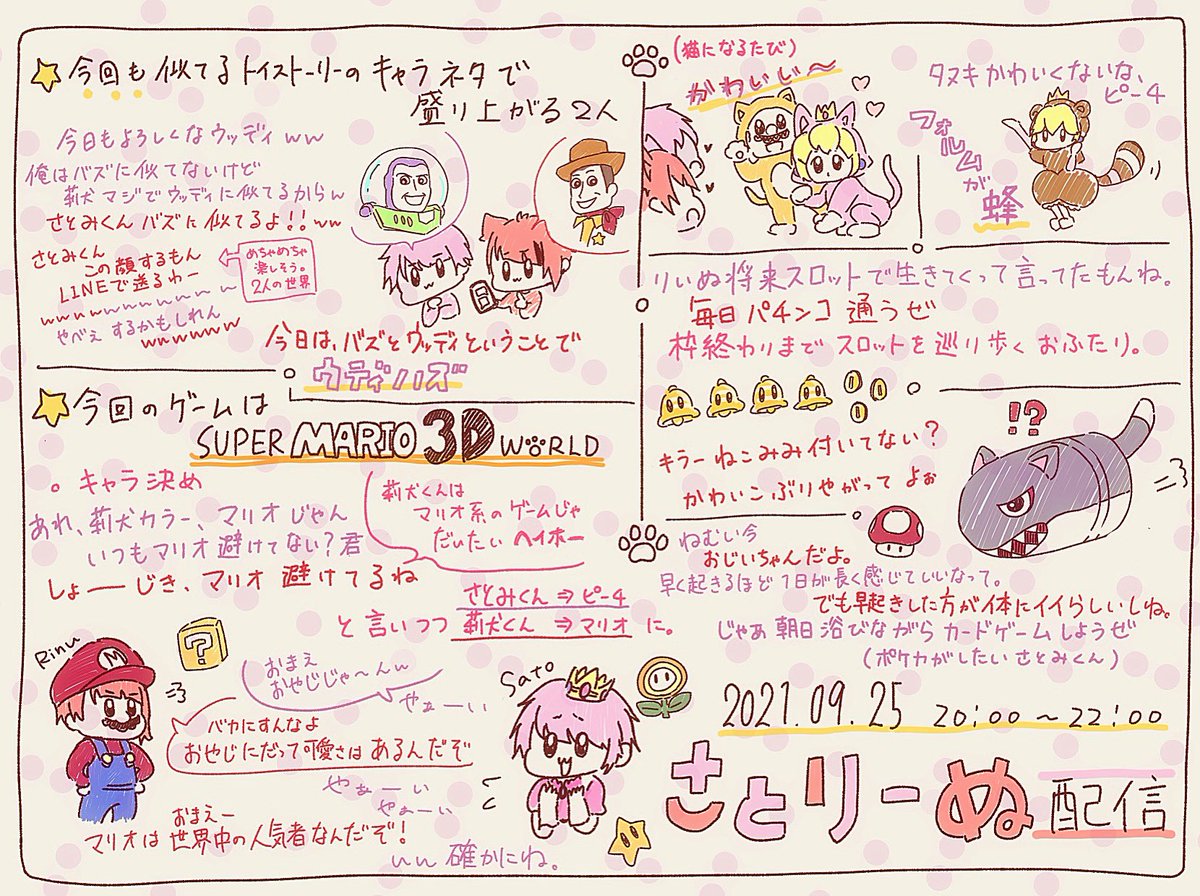 今回も似てるトイストーリーのキャラネタで
盛り上がる2人
今日もよろしくなウッディww
俺はバズに似てないけど
莉犬マジでウッディに似てるからw
さとみくんバズに似てるよ!!ww
さとみくん
この顔するもん
LINEで送るわー
wwwwwwwww
やべぇするかもしれん
wwwwww
めちゃめちゃ
楽しそう。
2人の世界
今日は、バズとウッディということで
ウディバズ
今回のゲームは
SUPER MARIO 3D WORLD
。キャラ決め
あれ、莉犬カラー、マリオじゃん
いつもマリオ避けてない?君
しょーーじき、マリオ避けてるね
莉犬くんは
マリオ系のゲームじゃ
だいたいヘイホー
さとみくん⇒ピー4
と言いつつ 莉犬くん⇒マリオに。
Rinu
M
?
おまえ
おやじじゃ〜んw
やぁーい
バカにすんなよ
おやじにだって可愛さはあるんだぞ
やぁーい
やぁーい
おまえー
マリオは世界中の人気者なんだぞ!
ww確かにね。
Sato
(猫になるたび)
がわいい〜
タヌキかわいくないな、
ピー4
フォルムが
蜂
りいぬ将来スロットで生きてくって言ってたもんね。
毎日パチンコ通うぜ
枠終わりまでスロットを巡り歩くおふたり。
キラーねこみみ付いてない?
かわいこぶりやがってよぉ
!?
ねむい今
おじいちゃんだよ。
早く起きるほど1日が長く感じていいなって。
でも早起きした方が体にイイらしいしね。
じゃあ朝日浴びながらカードゲームしようぜ
(ポケカがしたいさとみくん)
2021.09.25 20:00〜22:00
さとりーぬ配信